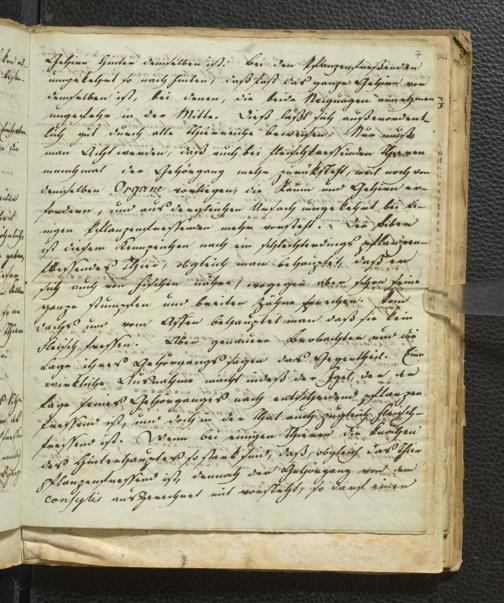 7
Gehirn hinter demselben ist. Bei den Pflanzenfressenden
umgekehrt so nach hinten, daß fast das ganze Gehirn vor
demselben ist, bei denen, die beide Neigungen annehmen
ungefähr in der Mitte. Dieß läßt sich außerordent
lich gut durch alle Thierreiche beweisen. Nur muß
man Acht wenden, daß auch bei fleischfressenden Thieren
manchmal der Gehörgang mehr zurücksteht, weil noch von
demselben Organe vorliegen, die Raum und Gehirn er-
fordern, und aus dergleichen Ursach umgekehrt bei ei-
nigen Pflanzenfressenden mehr vorsteht. Der Biber
ist diesem Kennzeichen nach ein schlechterdings pflanzen-
fressendes Thier, obgleich man behauptet, daß er
sich auch von Fischen nähre, wogegen aber schon seine
ganze stumpfen und breiten Zähne sprechen. Vom
Dachs und vom Affen behauptet man daß sie kein
Fleisch fressen. Aber genauere Beobachter und die
Lage ihres Gehörgangs sagen das Gegentheil. Eine
wirkliche Ausnahme macht indeß der Igel der der
Lage seines Gehörganges nach entscheidend pflanzen
fressend ist, und doch in der That auch zugleich fleisch-
fressend ist. Wenn bei einigen Thieren die Knochen
des Hinterhauptes so stark sind, daß, obgleich das Thier
Pflanzenfressend ist, dennoch der Gehörgang von dem
ausgerechnet mit vorsteht, so darf einen